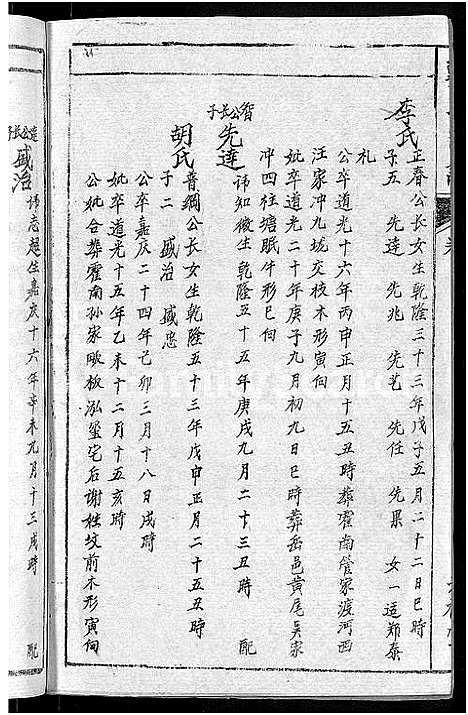 李氏 正春公长女生乾隆三十三年戊子五月二十二日巳時
子五 先達 先兆 先艺 先任 先果 女一适郑泰
礼
公卒道光十六年丙申正月十五丑時葬霍南管家渡河西
汪家冲九垅交枝木形寅向
妣卒道光二十年庚子九月初九日巳時葬岳邑黄尾吴家
冲四柱塘眠牛形巳向
智公长子 先達 讳知微生乾隆五十五年庚戌九月二十三丑時 配
胡氏 普纲公长女生乾隆五十三年戊申正月二十五丑時
子二 盛治 盛忠
公卒嘉庆二十四年己卯三月十八日戌時
妣卒道光十五年乙未十二月十五亥時
公妣合葬霍南孙家畈板泓玺宅后谢姓坟前木形寅向
達公长子 盛治 讳志超生嘉庆十六年辛未九月十三戌時 配